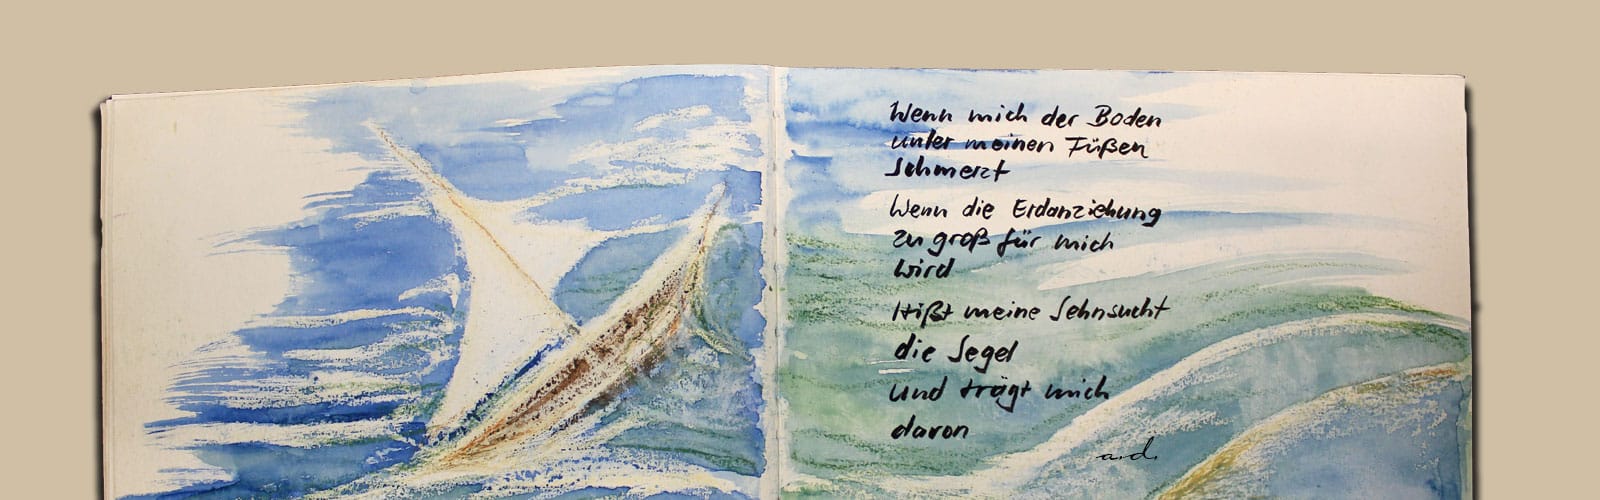 Wenn mich der Boden
unter meinen Füßen
schmerzt
Wenn die Erdanziehung
zu groß für mich
wird
Hißt meine Sehnsucht
die Segel
und trägt mich
davon
a.d.